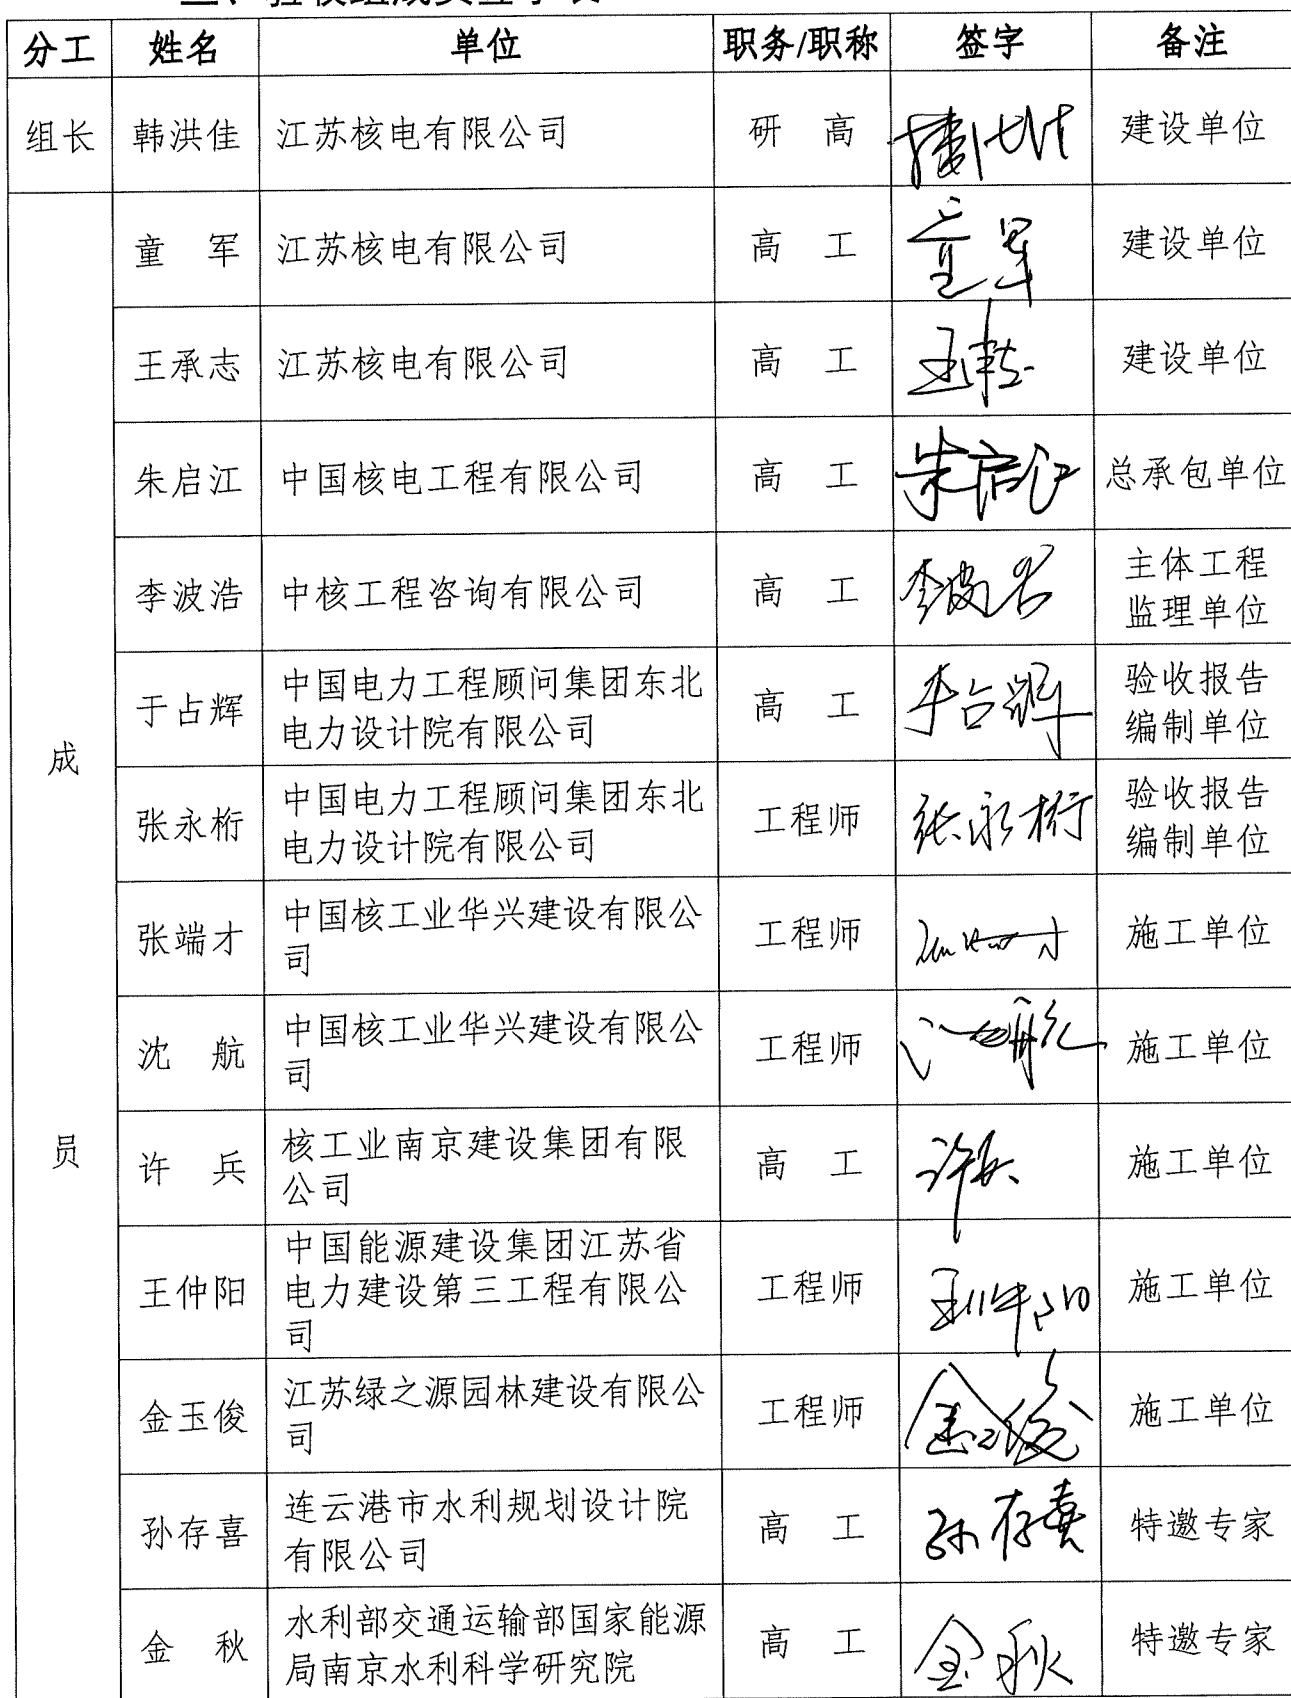 三、验收组成员签字表
分工 姓名 单位 职务/职称 签字 备注
组长 韩洪佳 江苏核电有限公司 研 高 建设单位
童 军 江苏核电有限公司 高 工 童军 建设单位
王承志 江苏核电有限公司 高 工 王承志 建设单位
朱启江 中国核电工程有限公司 高 工 朱启江 总承包单位
李波浩 中核工程咨询有限公司 高 工 李波浩 主体工程
监理单位
于占辉 中国电力工程顾问集团东北
电力设计院有限公司 高 工 于占辉 验收报告
编制单位
成
张永桁 中国电力工程顾问集团东北
电力设计院有限公司 工程师 张永桁 验收报告
编制单位
张端才 中国核工业华兴建设有限公
司 工程师 施工单位
沈 航 中国核工业华兴建设有限公
司 工程师 沈航 施工单位
员
许 兵 核工业南京建设集团有限
公司 高 工 许兵 施工单位
王仲阳 中国能源建设集团江苏省
电力建设第三工程有限公
司 工程师 王仲阳 施工单位
金玉俊 江苏绿之源园林建设有限公
司 工程师 金玉俊 施工单位
孙存喜 连云港市水利规划设计院
有限公司 高 工 孙存喜 特邀专家
金 秋 水利部交通运输部国家能源
局南京水利科学研究院 高 工 金秋 特邀专家